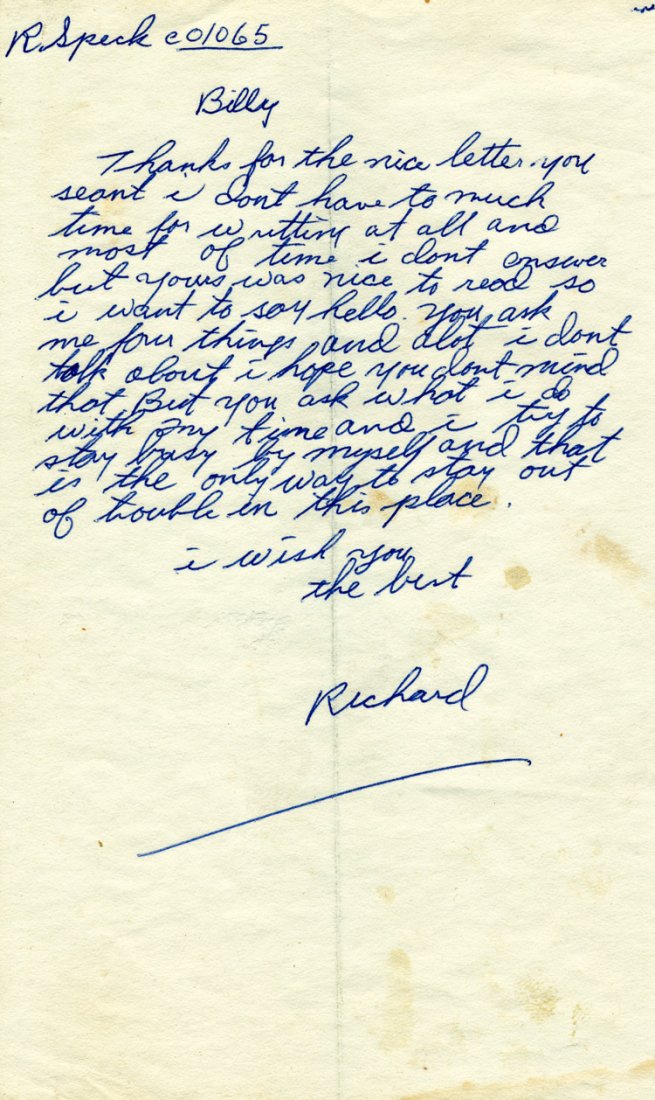 R. Speck c01065
Billy
Thanks for the nice letter you
seant i dont have to much
time for writting at all and
most of time i dont answer
but yours was nice to read so
i want to say hello. You ask
me four things and alot i dont
talk about i hope you dont mind
that But you ask what i do
with my time and i try to
stay busy by myself and that
is the only way to stay out
of trouble in this place.
i wish you
the best
Richard